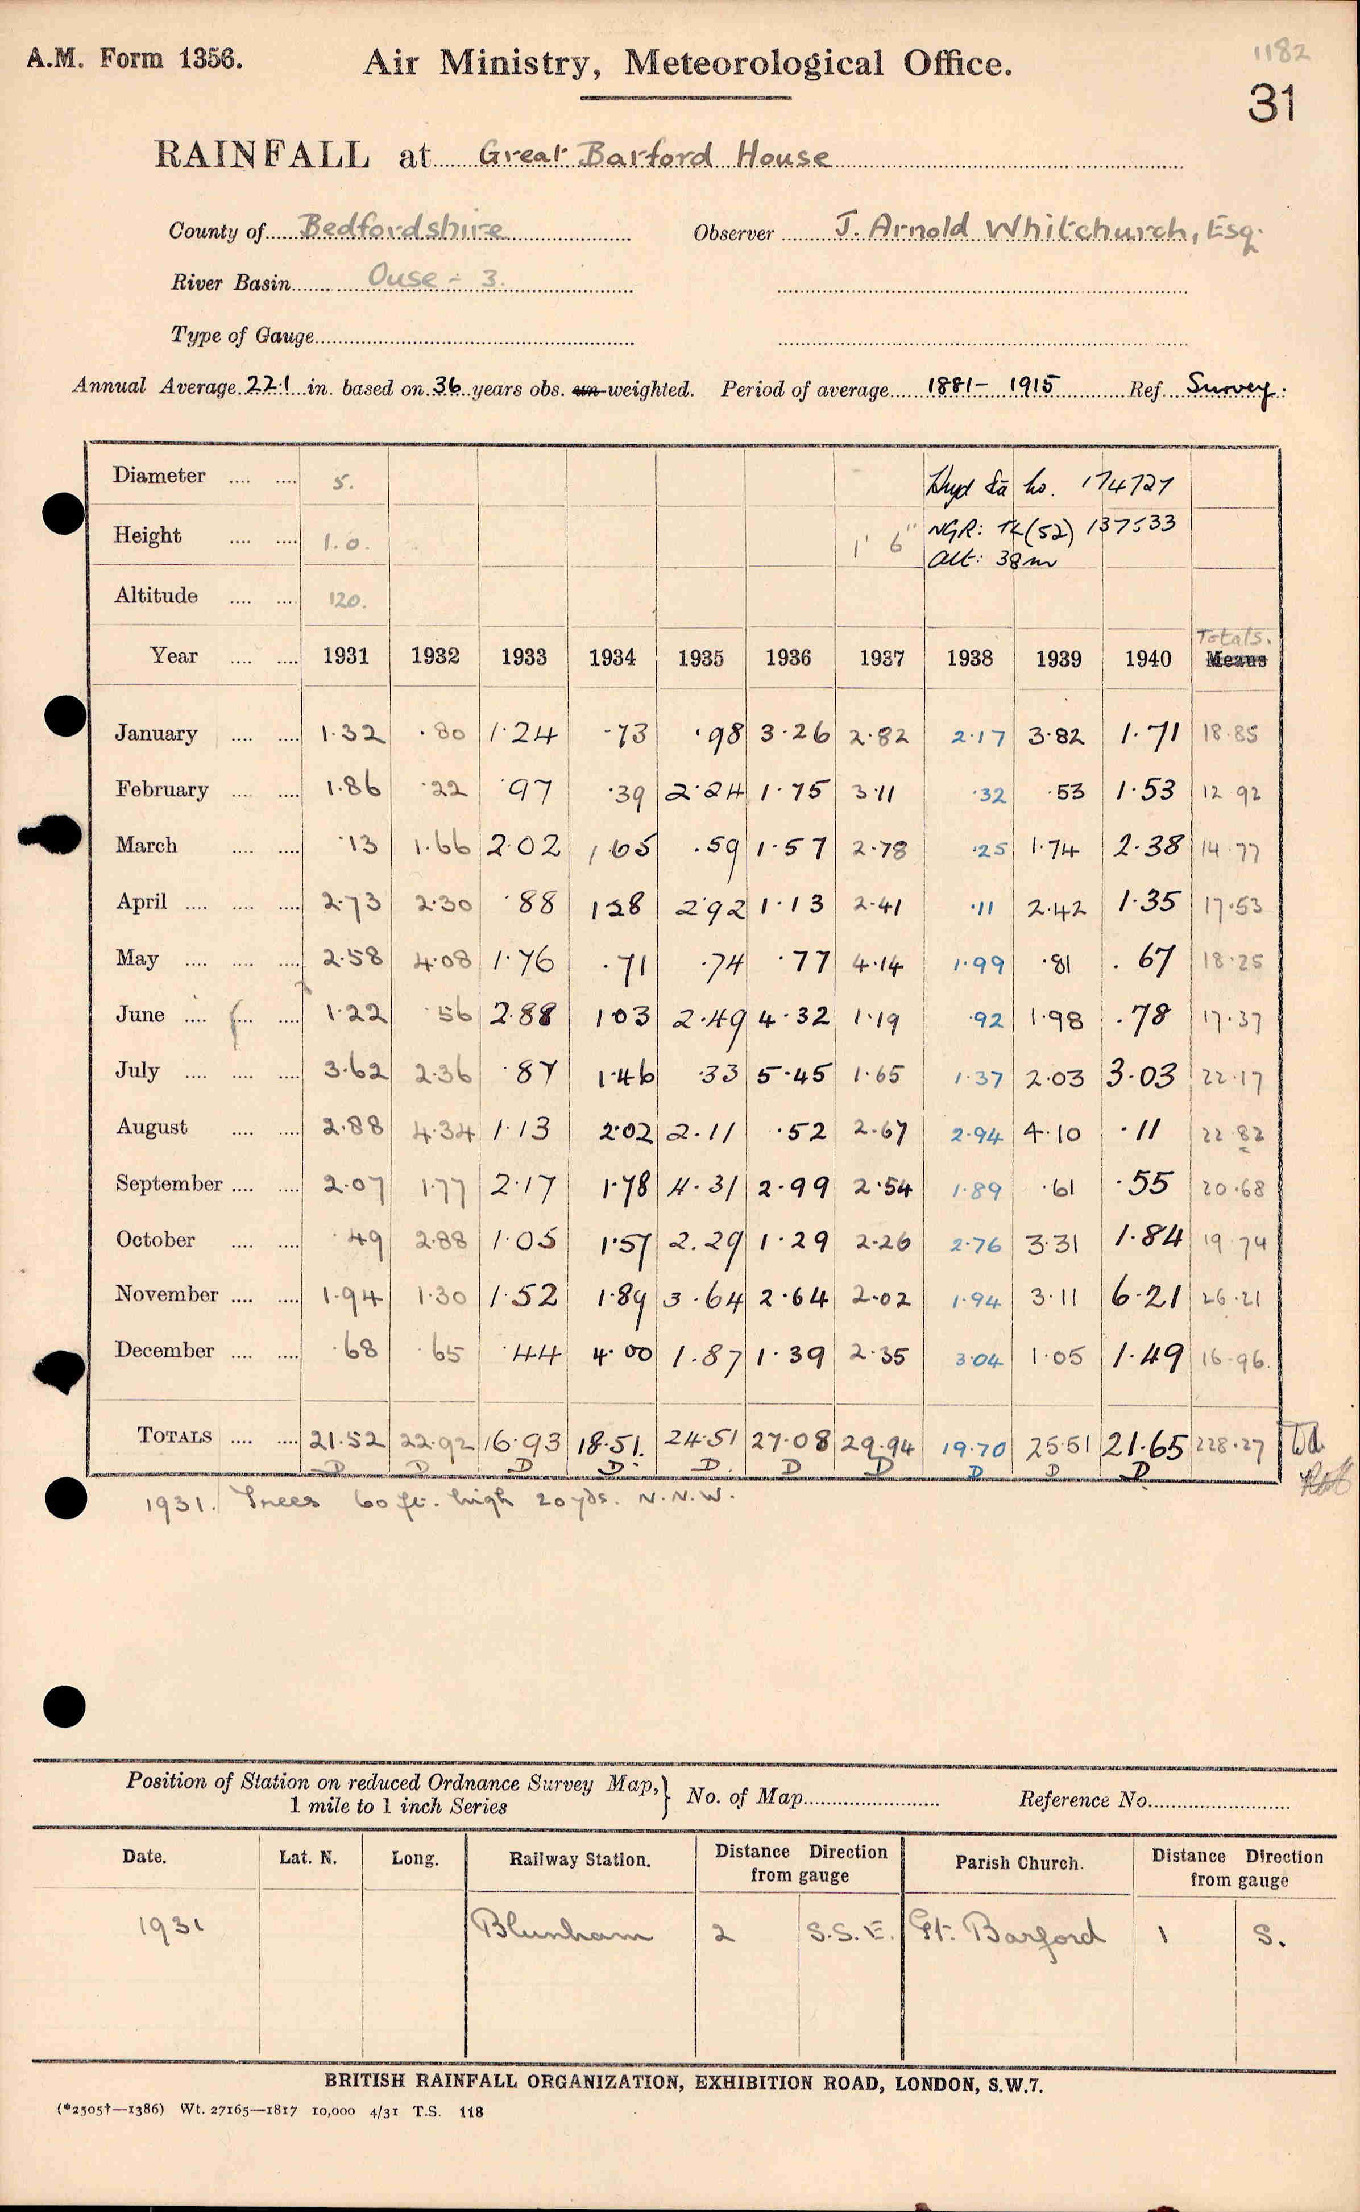 1182
A.M. Form 1356. Air Ministry, Meteorological Office.
31
RAINFALL at Great Barford House
County of Bedfordshire Observer J. Arnold Whitchurch, Esq.
River Basin Ouse - 3.
Type of Gauge
Annual Average 22.1 in. based on 36 years obs. un-weighted. Period of average 1881 - 1915 Ref. Survey.
Diameter 5. Hyd Sa No. 174727
Height 1.0. 1' 6" NGR: TL(52) 137533
Alt: 38m
Altitude 120.
Totals.
Year 1931 1932 1933 1934 1935 1936 1937 1938 1939 1940 Means
January 1.32 .80 1.24 .73 .98 3.26 2.82 2.17 3.82 1.71 18.85
February 1.86 .22 .97 .39 2.24 1.75 3.11 .32 .53 1.53 12 92
March .13 1.66 2.02 1.65 .59 1.57 2.78 .25 1.74 2.38 14.77
April 2.73 2.30 .88 1.28 2.92 1.13 2.41 .11 2.42 1.35 17.53
May 2.58 4.08 1.76 .71 .74 .77 4.14 1.99 .81 .67 18.25
June 1.22 .56 2.88 1.03 2.49 4.32 1.19 .92 1.98 .78 17.37
July 3.62 2.36 .87 1.46 .33 5.45 1.65 1.37 2.03 3.03 22.17
August 2.88 4.34 1.13 2.02 2.11 .52 2.67 2.94 4.10 .11 22 82
September 2.07 1.77 2.17 1.78 4.31 2.99 2.54 1.89 .61 .55 20.68
October .49 2.88 1.05 1.57 2.29 1.29 2.26 2.76 3.31 1.84 19 74
November 1.94 1.30 1.52 1.89 3.64 2.64 2.02 1.94 3.11 6.21 26.21
December .68 .65 .44 4.00 1.87 1.39 2.35 3.04 1.05 1.49 16.96.
TOTALS 21.52 22.92 16.93 18.51. 24.51 27.08 29.94 19.70 25.51 21.65 228.27
D D D D. D. D D D D D
1931. Trees 60 ft. high 20 yds. N.N.W.
Position of Station on reduced Ordnance Survey Map,} No. of Map Reference No.
1 mile to 1 inch Series
Date. Lat. N. Long. Railway Station. Distance Direction from gauge Parish Church. Distance Direction from gauge
1931 Blunham 2 S.S.E. Gt. Barford 1 S.
BRITISH RAINFALL ORGANIZATION, EXHIBITION ROAD, LONDON, S.W.7.
(*2505†—1386) Wt. 27165—1817 10,000 4/31 T.S. 118